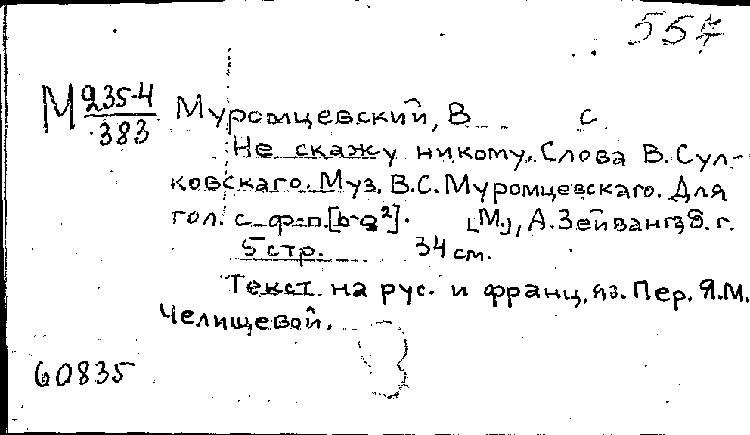 557
М 235-4 Муромцевский, В С
383
Не скажу никому. Слова В. Сул-
ковскаго. Муз. В.С. Муромцевскаго. Для
гол. с ф-п. [b-g²]. [М.], А. Зейванг, б. г.
5 стр. 34 см.
Текст на рус. и франц. яз. Пер. Я.М.
Челищевой.
60835